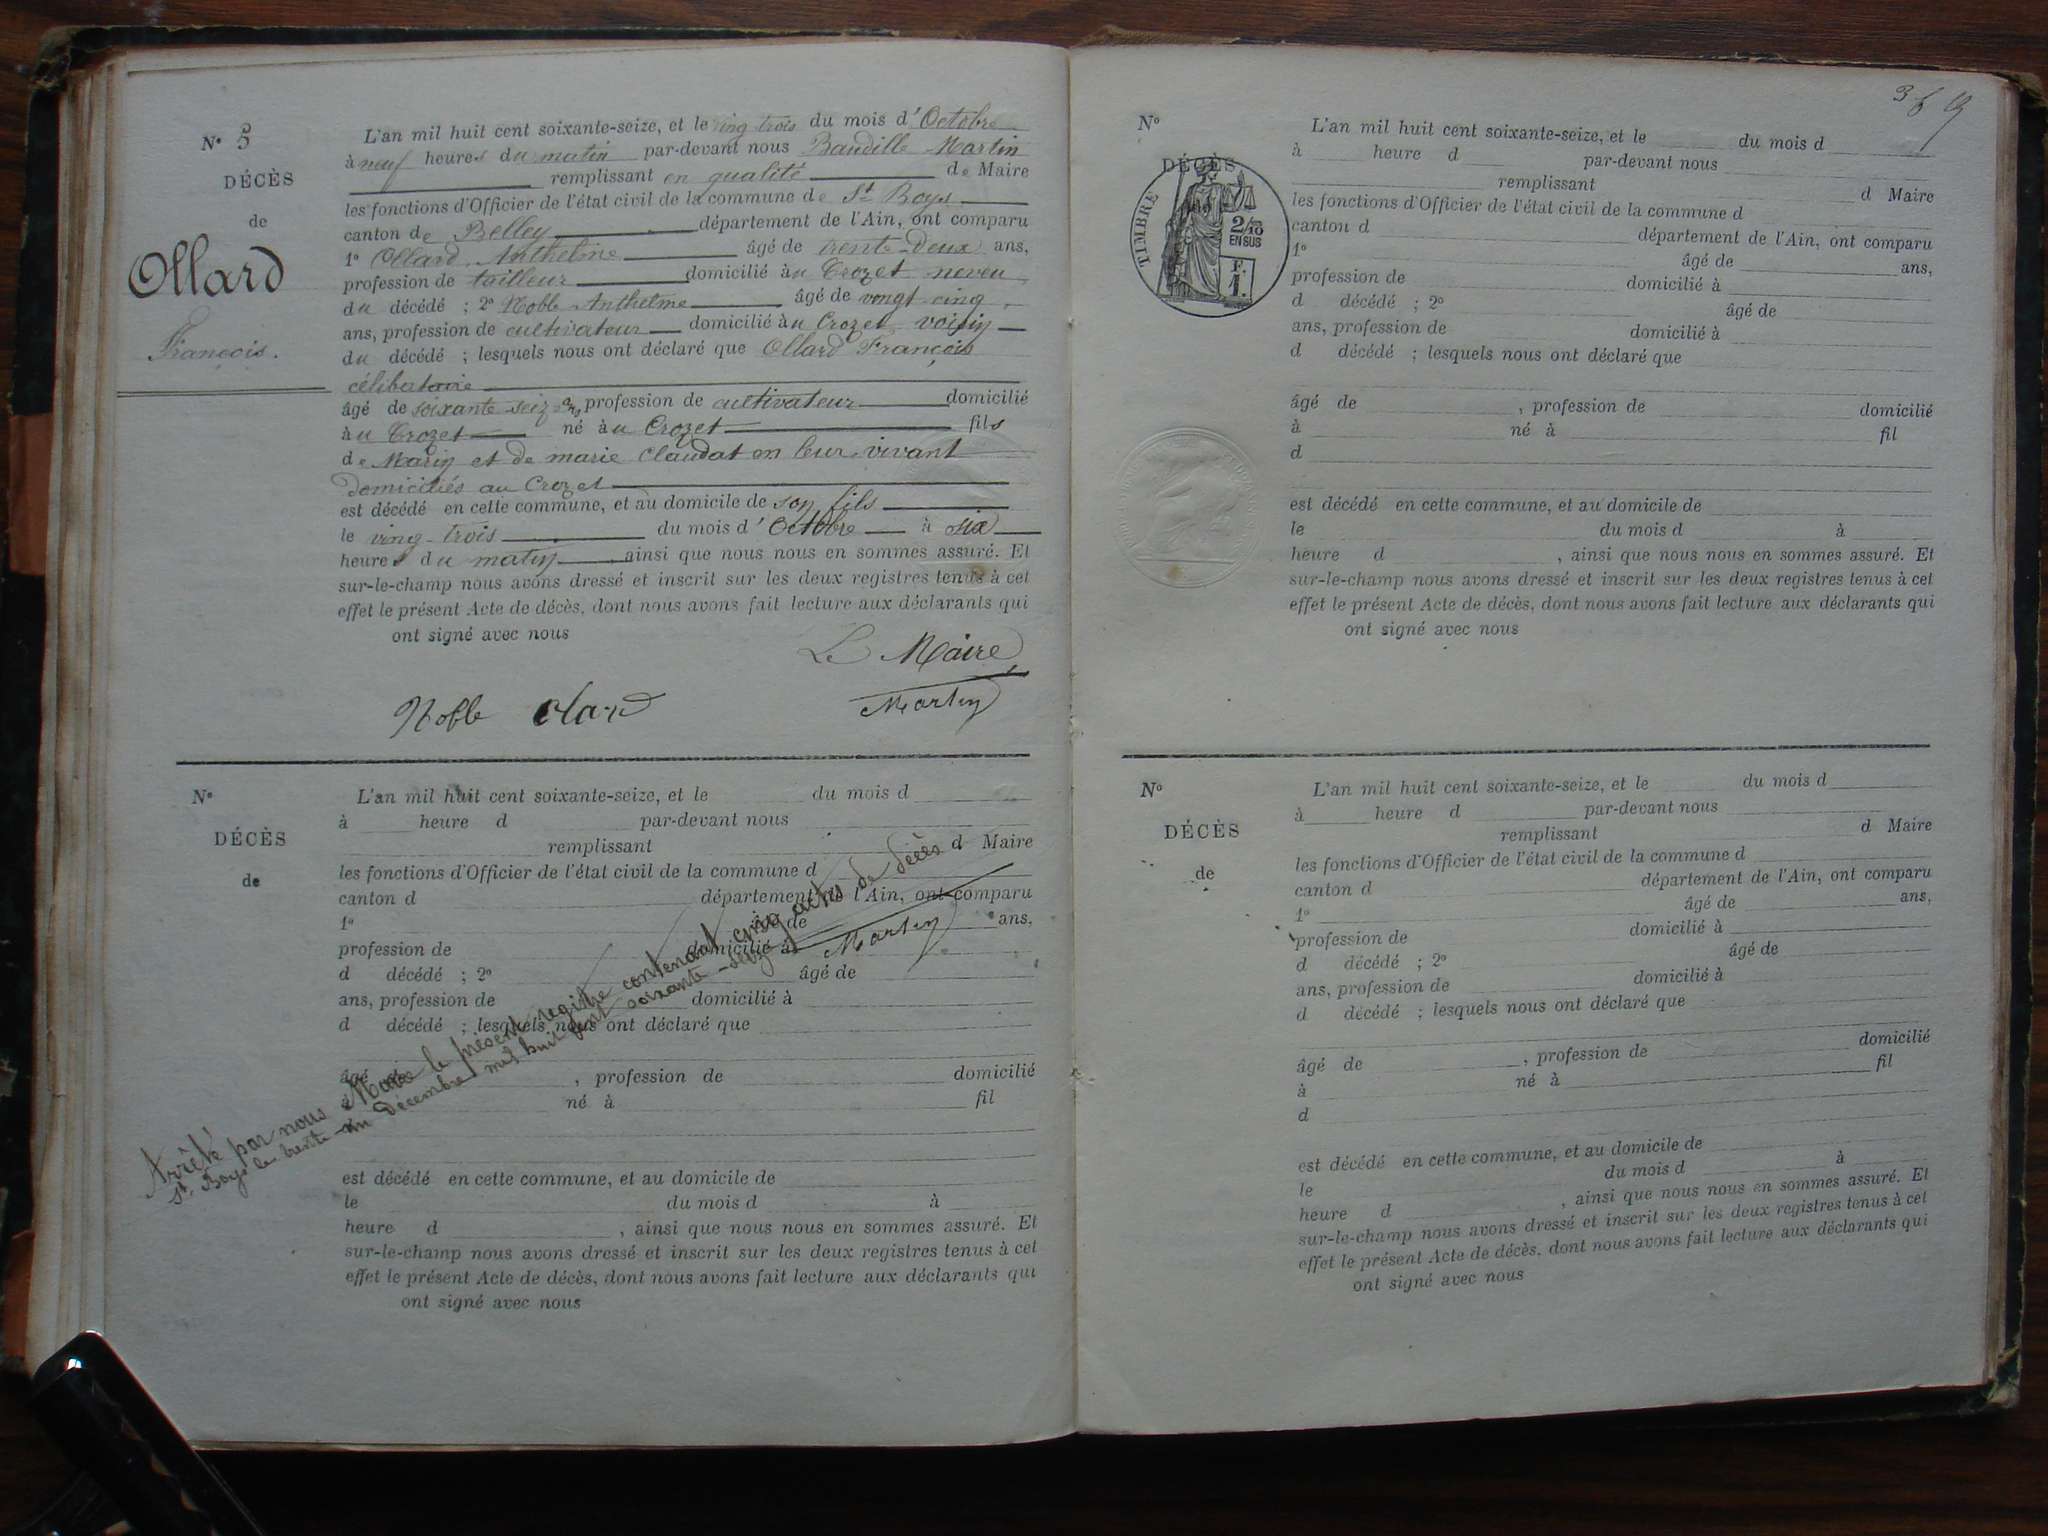 N° 5
DÉCÈS
de
Ollard
François.
L'an mil huit cent soixante-seize, et le ving trois du mois d'Octobre
à neuf heures du matin par-devant nous Baudille Martin
remplissant en qualité de Maire
les fonctions d'Officier de l'état civil de la commune de St Boys
canton de Belley département de l'Ain, ont comparu
1° Ollard Anthelme âgé de trente-deux ans,
profession de tailleur domicilié au Crozet neveu
du décédé ; 2° Noble Anthelme âgé de vingt cinq
ans, profession de cultivateur domicilié au Crozet voisin
du décédé ; lesquels nous ont déclaré que Ollard François
célibataire
âgé de soixante-seiz ans, profession de cultivateur domicilié
au Crozet né au Crozet fils
de Marin et de marie Claudat en leur vivant
domiciliés au Crozet
est décédé en cette commune, et au domicile de son fils
le ving-trois du mois d'Octobre à six
heures du matin ainsi que nous nous en sommes assuré. Et
sur-le-champ nous avons dressé et inscrit sur les deux registres tenus à cet
effet le présent Acte de décès, dont nous avons fait lecture aux déclarants qui
ont signé avec nous
Le Maire
Noble olard Martin
N°
DÉCÈS
de
L'an mil huit cent soixante-seize, et le du mois d
à heure d par-devant nous
remplissant d Maire
les fonctions d'Officier de l'état civil de la commune d
canton d département de l'Ain, ont comparu
1° âgé de ans,
profession de domicilié à
d décédé ; 2° âgé de
ans, profession de domicilié à
d décédé ; lesquels nous ont déclaré que
âgé de , profession de domicilié
à né à fil
est décédé en cette commune, et au domicile de
le du mois d à
heure d , ainsi que nous nous en sommes assuré. Et
sur-le-champ nous avons dressé et inscrit sur les deux registres tenus à cet
effet le présent Acte de décès, dont nous avons fait lecture aux déclarants qui
ont signé avec nous
Arrêté par nous Maire le présent registre contenant cinq actes de décès
St. Boys le trente-un décembre mil huit cent soixante-seize
Martin
N°
DÉCÈS
TIMBRE
2/10
EN SUS
F.
1.
L'an mil huit cent soixante-seize, et le du mois d
à heure d par-devant nous
remplissant d Maire
les fonctions d'Officier de l'état civil de la commune d
canton d département de l'Ain, ont comparu
1° âgé de ans,
profession de domicilié à
d décédé ; 2° âgé de
ans, profession de domicilié à
d décédé ; lesquels nous ont déclaré que
âgé de , profession de domicilié
à né à fil
d
est décédé en cette commune, et au domicile de
le du mois d à
heure d , ainsi que nous nous en sommes assuré. Et
sur-le-champ nous avons dressé et inscrit sur les deux registres tenus à cet
effet le présent Acte de décès, dont nous avons fait lecture aux déclarants qui
ont signé avec nous
N°
DÉCÈS
de
L'an mil huit cent soixante-seize, et le du mois d
à heure d par-devant nous
remplissant d Maire
les fonctions d'Officier de l'état civil de la commune d
canton d département de l'Ain, ont comparu
1° âgé de ans,
profession de domicilié à
d décédé ; 2° âgé de
ans, profession de domicilié à
d décédé ; lesquels nous ont déclaré que
âgé de , profession de domicilié
à né à fil
d
est décédé en cette commune, et au domicile de
le du mois d à
heure d , ainsi que nous nous en sommes assuré. Et
sur-le-champ nous avons dressé et inscrit sur les deux registres tenus à cet
effet le présent Acte de décès, dont nous avons fait lecture aux déclarants qui
ont signé avec nous